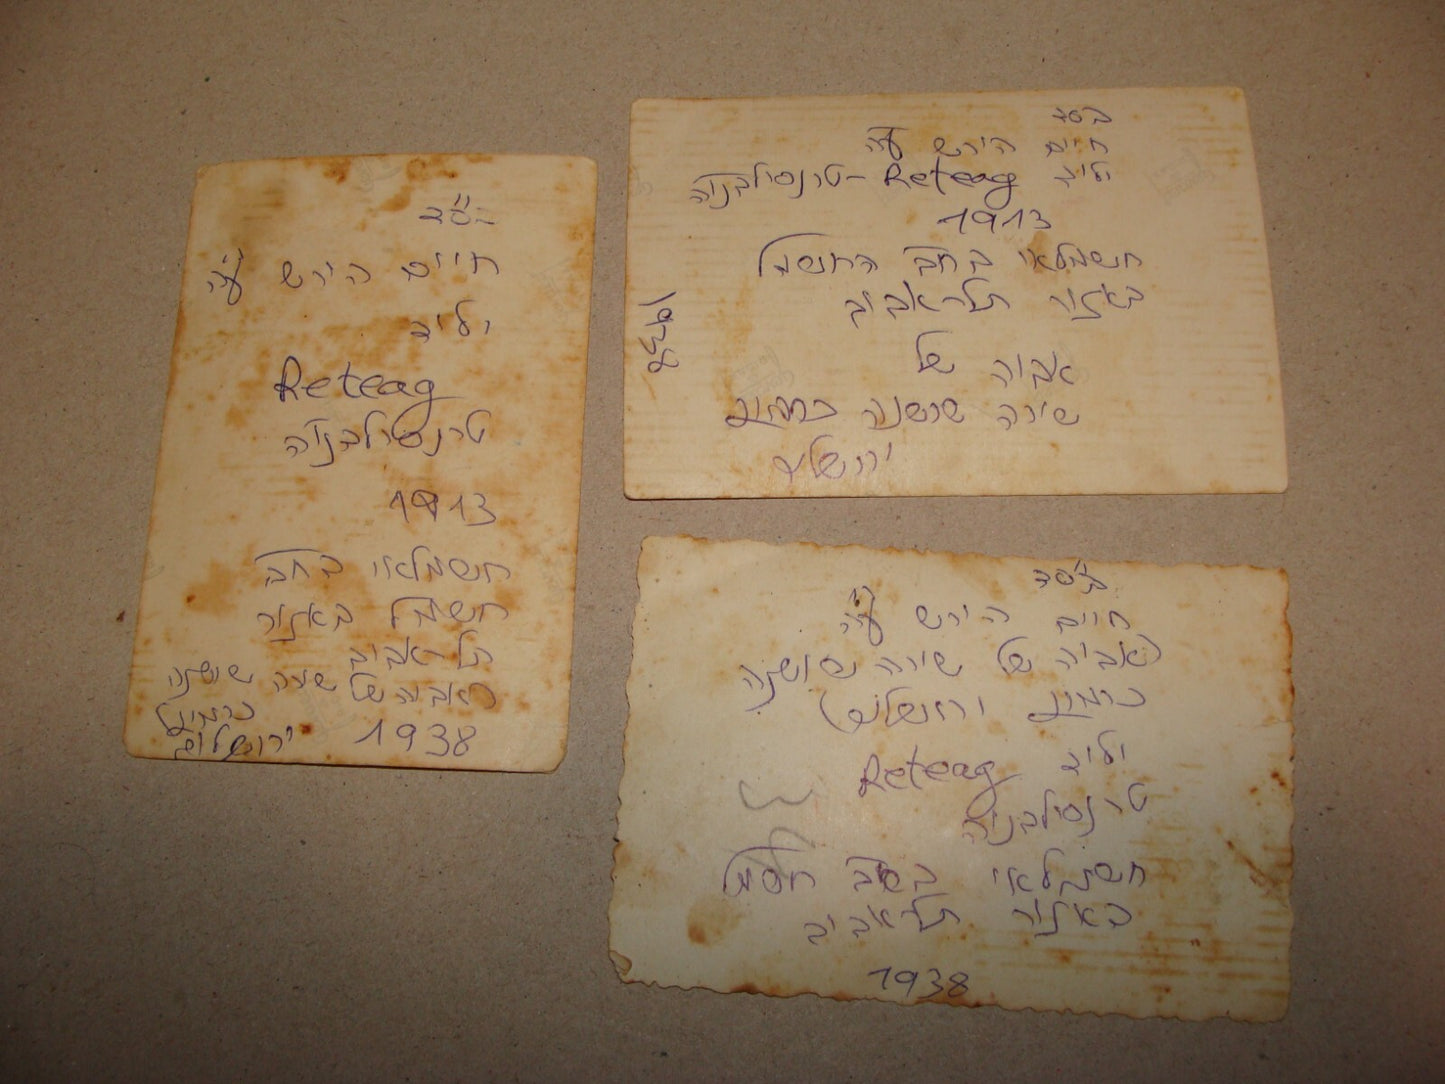 בס"ד
חיים הירש ע"ה
יליד
Reteag
טרנסילבניה
1913
חשמלאי בחב'
חשמל באזור
תל אביב
(אביה של שירה שושנה
כרמון
ירושלים
1938
בסד
חיים הירש ע"ה
יליד Reteag - טרנסילבניה
1913
חשמלאי בחב' החשמל
באזור תל אביב
אביה של
שירה שושנה כרמון
ירושלים
1938
בס"ד
חיים הירש ע"ה
(אביה של שירה שושנה
כרמון ירושלים)
יליד Reteag
טרנסילבניה
חשמלאי בחב' חשמל
באזור תל אביב
1938